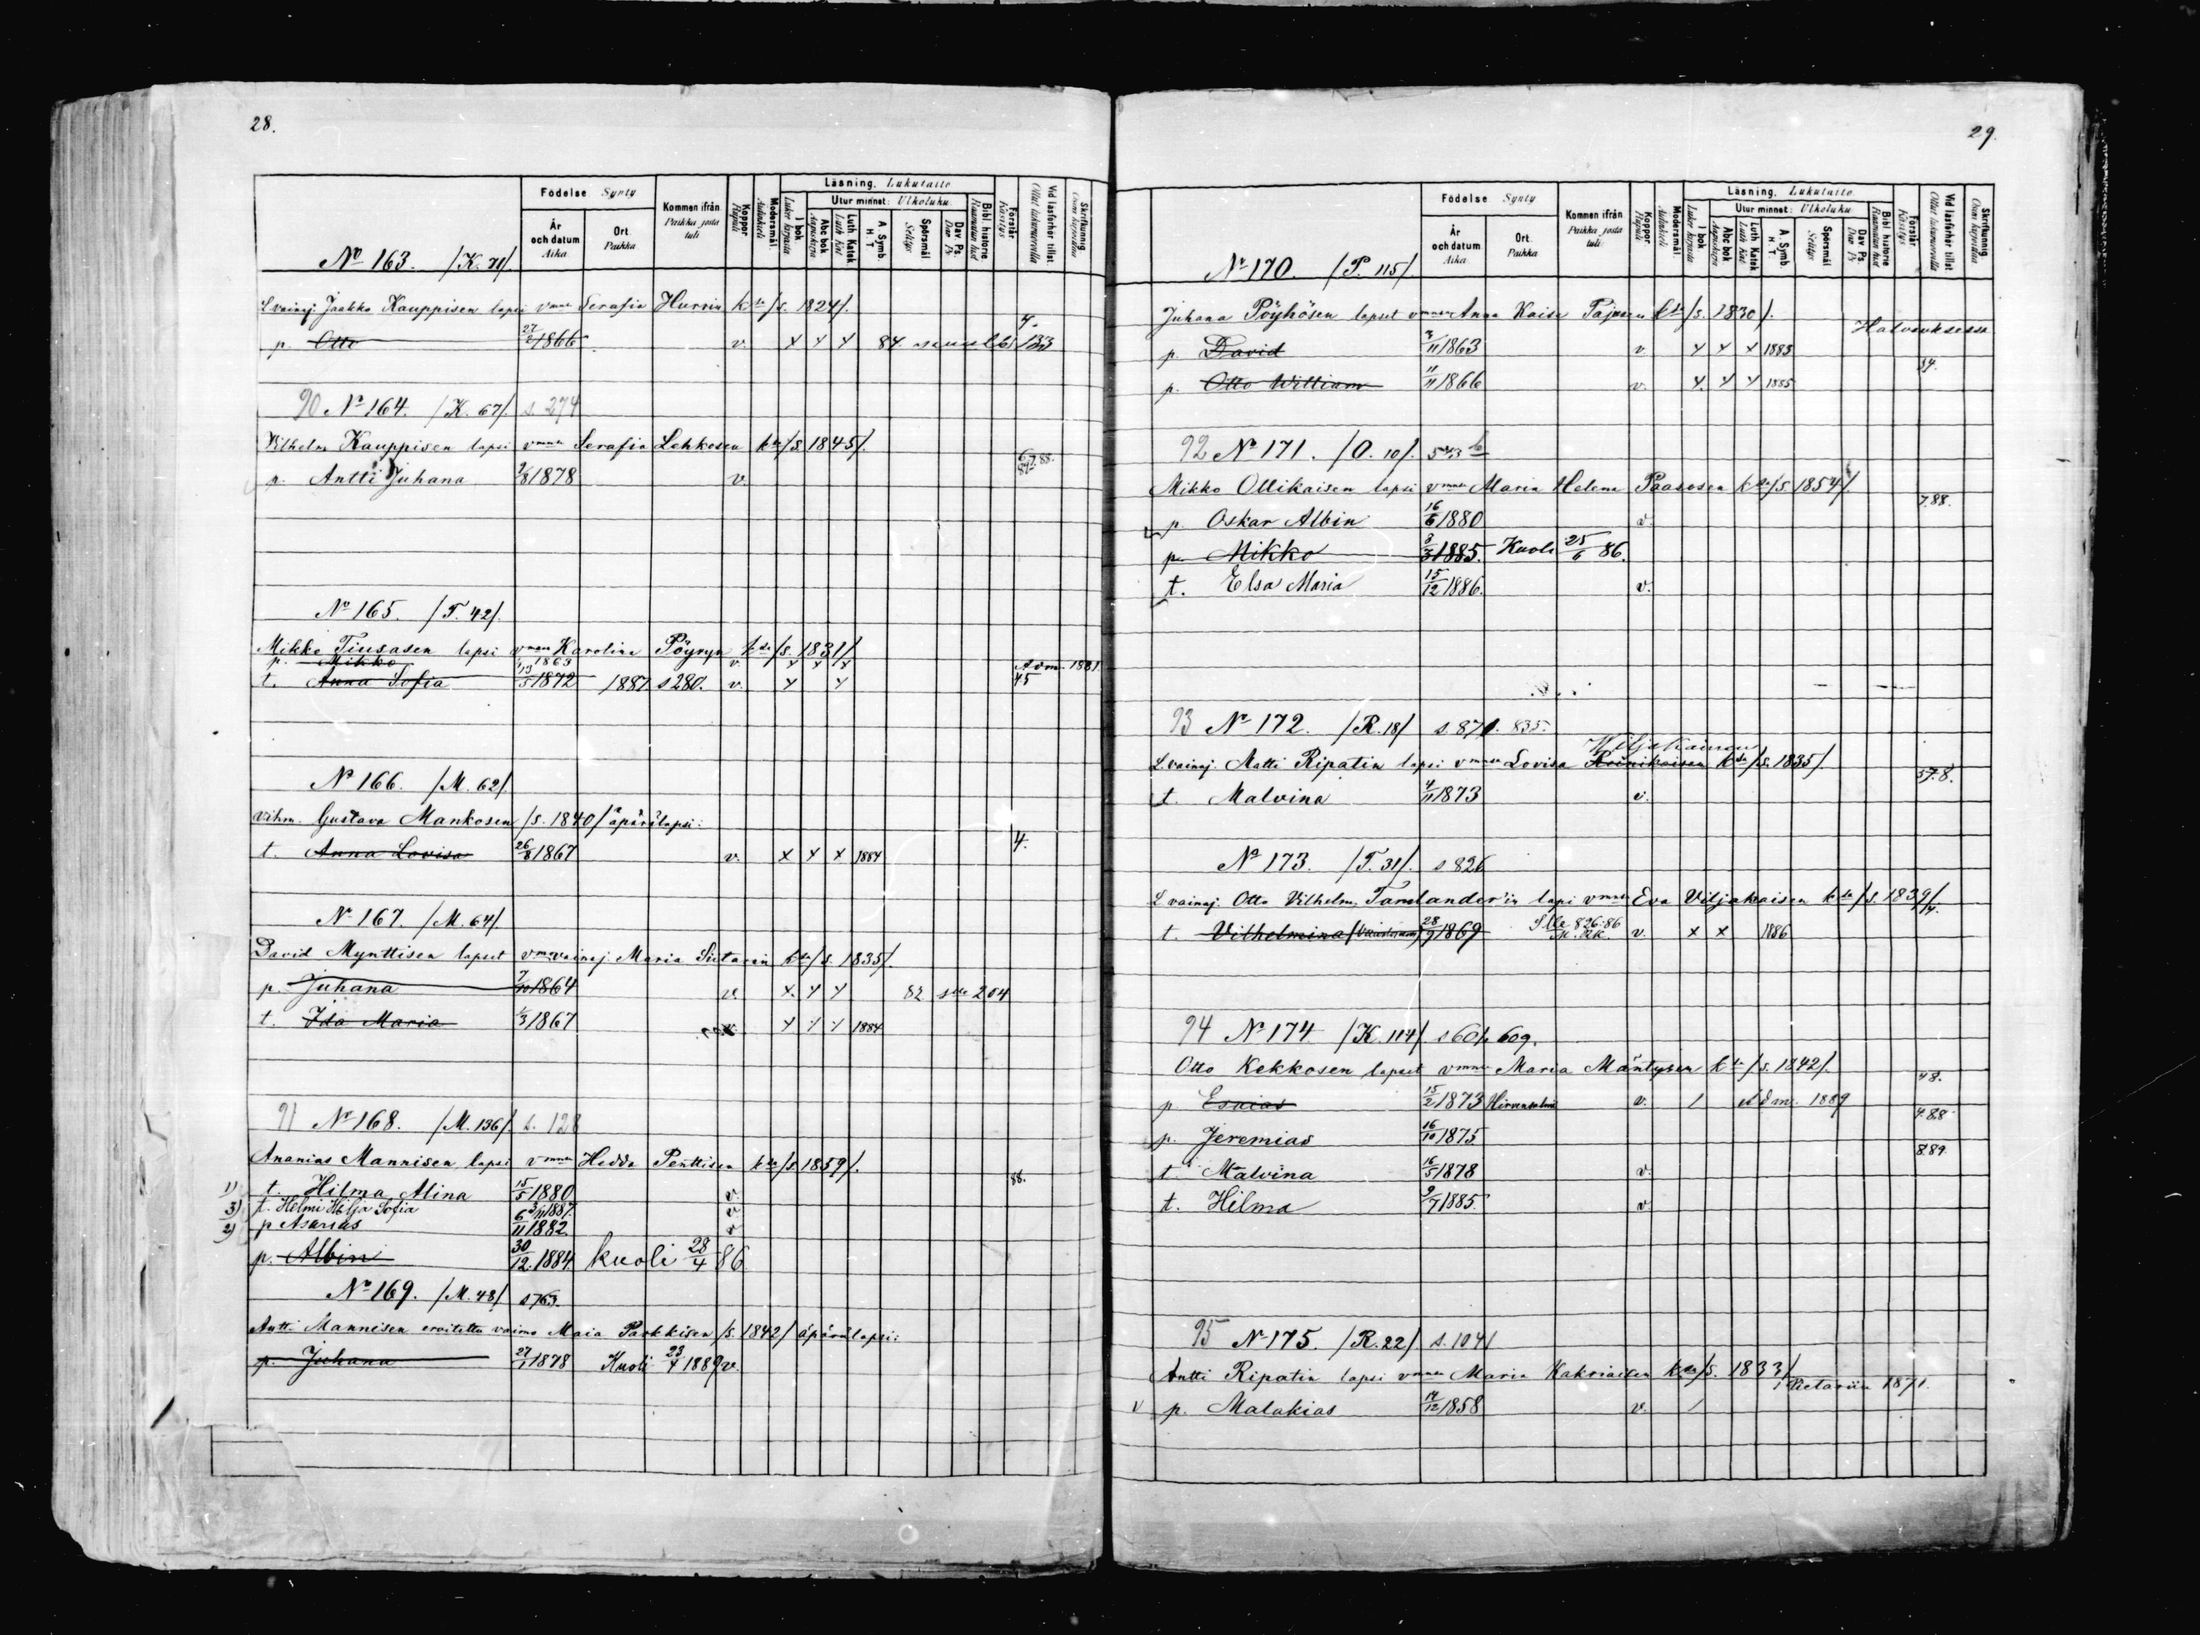 28.
Födelse Synty
År och datum Aika
Ort Paikka
Kommen ifrån Paikka josta tuli
Koppor Rupuli
Modersmål
Läsning. Lukutaito
Utur minnet: Ulkoluku
I bok Lukee kirjasta
Abc bok Aapiskirja
Luth. Katek Luth. Kat
A. Symb. H T
Spörsmål Selitys
Dav. Ps. Dav. Ps
Bibl. historie Raamatun hist
Förstår Käsitys
Vid läsförhör tillst. Ollut lukuvuorolla
Skrifkunnig
No 163. /K. 71/.
L vainaj. Jaakko Kauppisen lapsi vmnsa Serafia Hurrin kssa /s. 1824/.
p. Otto 27/2 1866 v. x x x 84.
90 No 164. /K. 67/. s. 274
Vilhelm Kauppisen lapsi vmnsa Serafia Lehkosen kssa /s. 1845/.
p. Antti Juhana 1878 v.
No 165. /T. 42/.
Mikko Tiusasen lapsi vmnsa Karolina Pöyryn kssa /s. 1831/
p. Mikko 1863 v. x x x Adm. 1881
t. Anna Sofia 1872 1887 s 280. v. x x 45
No 166. /M. 62/.
Gustava Mankosen /s. 1840/ äpärälapsi:
t. Anna Lovisa 26/8 1867 v. x x x 1884 4.
No 167. /M. 64/
David Mynttisen lapset vmvainaj Maria Sutarin kssa /s. 1835/.
p. Juhana 7/10 1864 v. x. x x 82 204
t. Ida Maria 1/3 1867 x x x 1884
91 No 168. /M. 136/ s. 128
Ananias Mannisen lapsi vmnsa Hedda Penttisen kssa /s. 1859/.
1) t. Hilma Alina 15/5 1880 v. 88.
3) t. Helmi Hilja Sofia 1887 v
2) p Asarias 6/11 1882 v
p. Albin 30/12 1884 kuoli 28/4 86
No 169. /M. 48/ s 763.
Antti Mannisen eroitettu vaimo Maia Parkkisen /s. 1842/ äpärälapsi:
p. Juhana 27/1 1878 Kuoli 1889 v.
29.
Födelse Synty
År och datum Aika
Ort Paikka
Kommen ifrån Paikka josta tuli
Koppor Rupuli
Modersmål
Läsning. Lukutaito
Utur minnet: Ulkoluku
I bok Lukee kirjasta
Abc bok Aapiskirja
Luth Katek Luth Kat
A. Symb. H T
Spörsmål Selitys
Dav Ps. Dav Ps
Bibl historie Raamatun hist
Förstår Käsitys
Vid läsförhör tillst Ollut lukuvuorolla
Skrifkunnig
No 170. /P. 115/
Juhana Pöyhösen lapset vmnsa Anna Kaisa Pajusen kssa /s. 1830/.
p. David 3/11 1863 v. x x x 1883
p. Otto William 11/11 1866 v. x. x x 1885 84.
92 No 171. /O. 10/.
Mikko Ollikaisen lapsi vmnsa Maria Helena Paasosen kssa /s. 1854/.
p. Oskar Albin 16/6 1880 v. 7.88.
p. Mikko 3/3 1885. Kuoli 25/6 86.
t. Elsa Maria 15/12 1886. v.
93 No 172. /R. 18/ s 871. 835.
Viljakainen
L. vainaj. Matti Ripatin lapsi vmnsa Lovisa Roinikaisen kssa /s. 1835/.
t. Malvina 1873 v.
No 173. /T. 31/. s 826
L vainaj. Otto Vilhelm Tamlander'in lapsi vmnsa Eva Viljakaisen kssa /s. 1839/.
t. Vilhelmina 28/9 1869 826.86 v. x x 1886
94 No 174 /K. 114/ 609.
Otto Kekkosen lapset vmnsa Maria Mäntysen kssa /s. 1842/.
p. Esaias 15/2 1873 Hirvensalmi v. / Adm. 1889
p. Jeremias 16/10 1875
t. Malvina 16/5 1878 v. 8.89.
t. Hilma 9/7 1885. v.
95 No 175. /R. 22/. s. 104
Antti Ripatin lapsi vmnsa Maria Kakriaisen kssa /s. 1833/
v p. Malakias 14/12 1858 v. / Pietariin 1871.